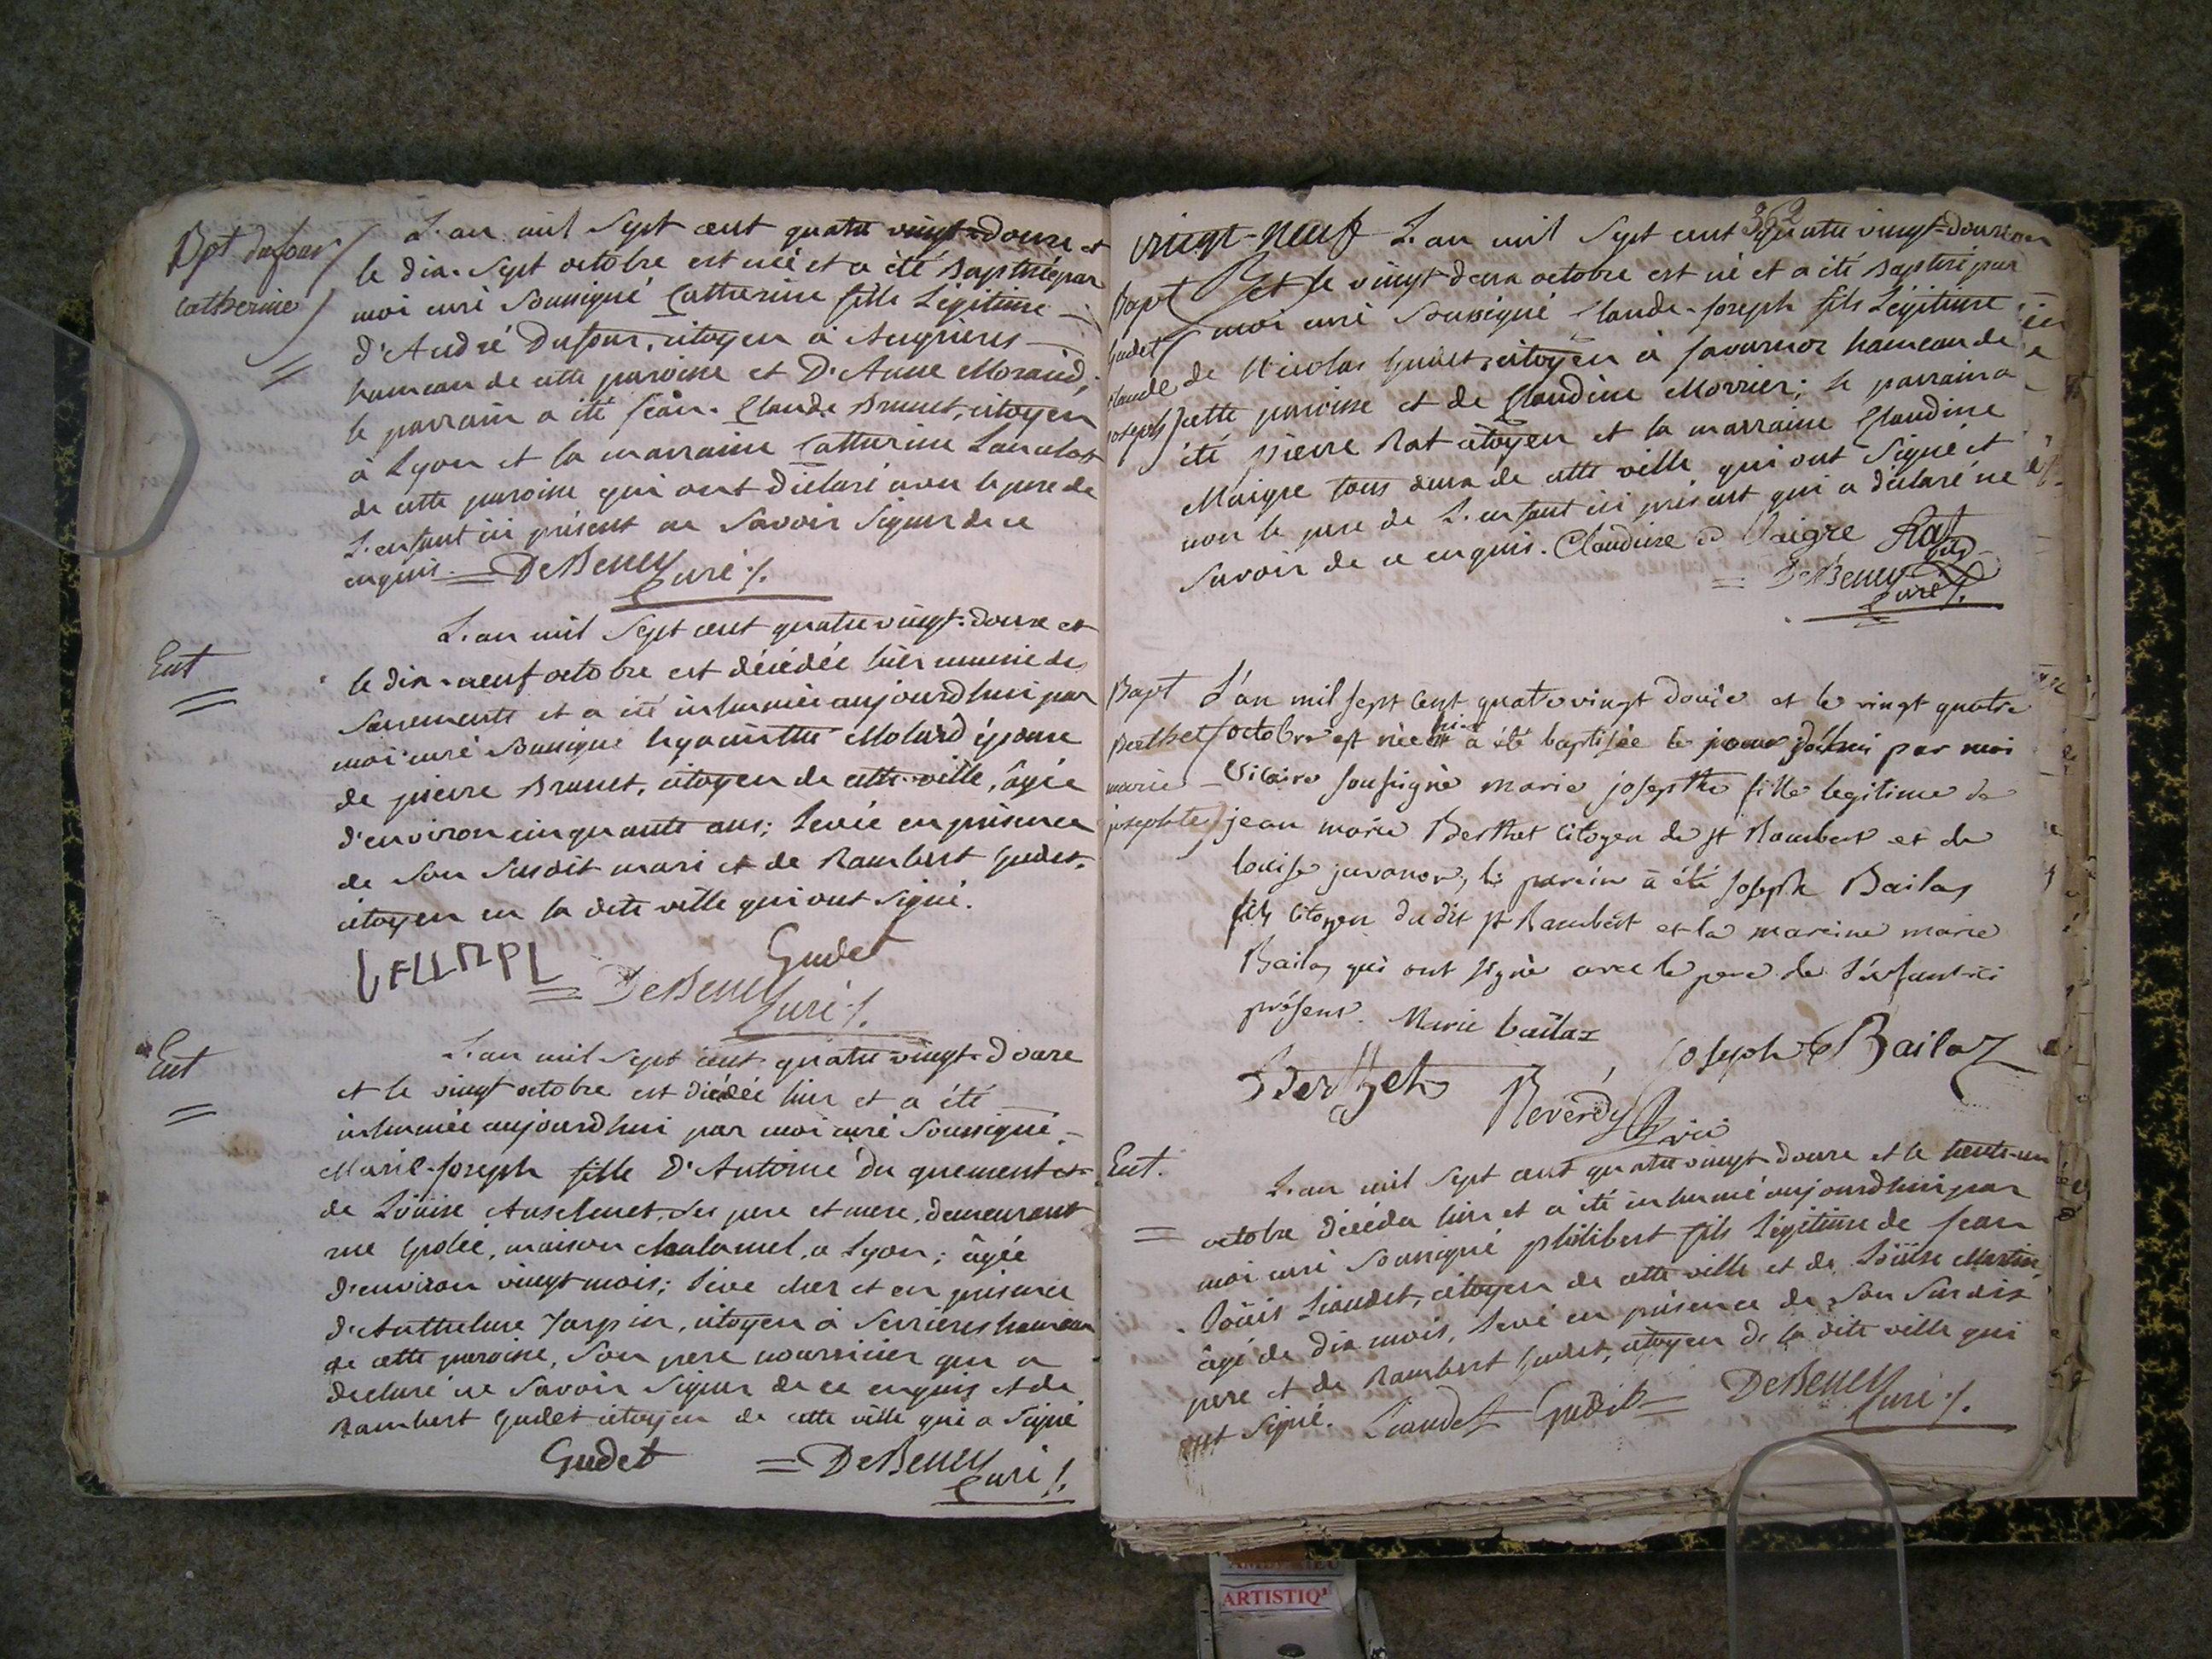 Bpt dufour
Catherine
L'an mil Sept cent quatre vingt-douze et
le dix-Sept octobre est née et a été Baptisée par
moi curé Soussigné Catherine fille Légitime
d'André Dufour, citoyen à Angrieres
hameau de cette paroisse et D'Anne Morand;
le parrain a été Jean-Claude Brunet, citoyen
à Lyon et la marraine Catherine Lancelot
de cette paroisse qui ont déclaré avec le pere de
L'enfant ici présent ne Savoir Signer de ce
enquis. = DeBeney
Curé ·/.
Ent
L'an mil Sept cent quatre vingt-douze et
le dix-neuf octobre est décédée hier munie des
Sacrements et a été inhumée aujourdhui par
moi curé Soussigné hyacinthe Molard épouse
de pierre Brunet, citoyen de cette ville, âgée
d'environ cinquante ans; Levée en présence
de Son Susdit mari et de Rambert Gudet
citoyen en la dite ville qui ont Signé.
Gudet
= DeBeney
Curé ·/.
Ent
L'an mil Sept cent quatre vingt-douze
et le vingt octobre est décédée hier et a été
inhumée aujourdhui par moi curé Soussigné
Marie-Joseph fille D'Antoine Du quement et
de Löüise Anselmet, Ses pere et mere, demeurant
rue Grolée, maison chalamel, a Lyon; âgée
d'environ vingt mois; Levé chez et en présence
d'Anthelme Jarpin, citoyen à Serrières hameau
de cette paroisse, Son pere nourricier qui a
declaré ne Savoir Signer de ce enquis et de
Rambert Gudet citoyen de cette ville qui a Signé
Gudet = DeBeney
Curé ·/.
362
vingt-neuf L'an mil Sept cent quatre vingt-douze
Bapt et le vingt deux octobre est né et a été Baptisé par
moi curé Soussigné Claude-Joseph fils Légitime
Gudet
claude de Nicolas Gudet, citoyen à Javornoz hameau de
joseph cette paroisse et de Claudine Morrier; le parrain a
été pierre Rat citoyen et la marraine Claudine
Maigre tous deux de cette ville qui ont Signé et
non le pere de L'enfant ici présent qui a déclaré ne
Savoir de ce enquis. Claudine Maigre Rat
= DeBeney
Curé ·/.
Bapt L'an mil sept cent quatre vingt douze et le vingt quatre
Berthet octobre est née hier a été baptisée le jour d'hui par moi
marie Vicaire soussigné marie josephte fille legitime de
josephte jean marie Berthet citoyen de st Rambert et de
louise juvanon, le parein a été joseph Bailaz
fils citoyen du dit st Rambert et la mareine marie
Bailaz qui ont signé avec le pere de l'enfant ici
présent. Marie bailaz
Joseph Bailaz
Berthet Reverdy
vic
Ent.
L'an mil Sept cent quatre vingt-douze et le trente-un
octobre décéda hier et a été inhumé aujourdhui par
moi curé Soussigné philibert fils Légitime de Jean
Loüis Liaudet, citoyen de cette ville et de Loüise Martin
âgé de dix mois, Levé en présence de Son Susdit
pere et de Rambert Gudet, citoyen de la dite ville qui
ont Signé. Liaudet Gudet = DeBeney
Curé ·/.
ARTISTIQ'